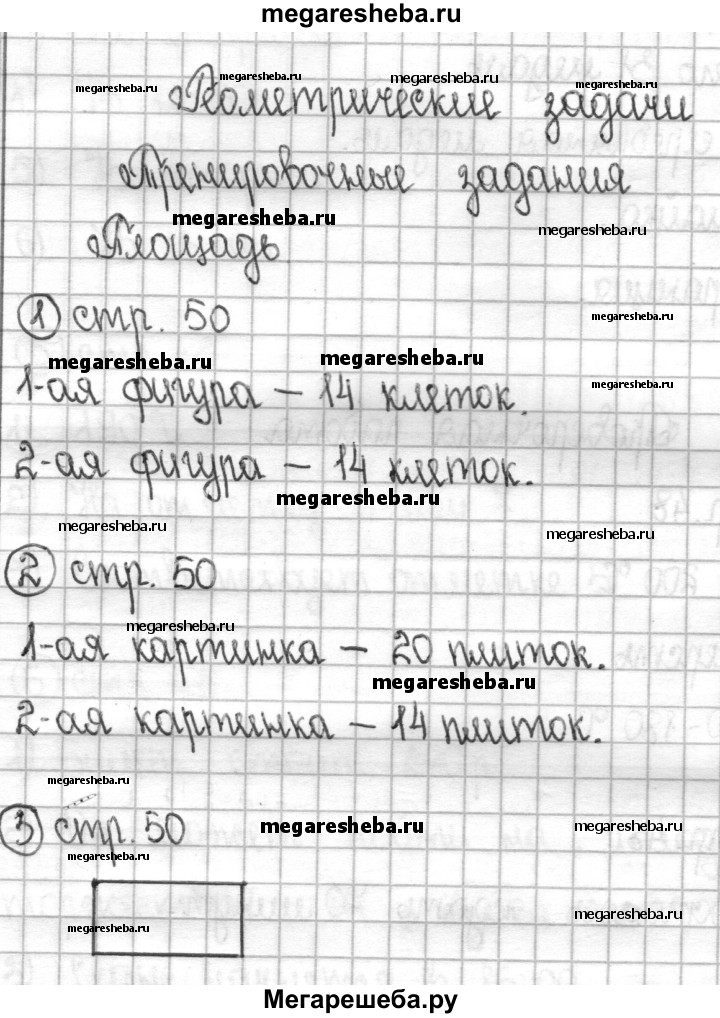 megaresheba.ru
megaresheba.ru megaresheba.ru megaresheba.ru
Геометрические задачи
Тренировочные задания
megaresheba.ru megaresheba.ru
Площадь
1 стр. 50
megaresheba.ru
megaresheba.ru megaresheba.ru
1-ая фигура – 14 клеток.
megaresheba.ru
2-ая фигура – 14 клеток.
megaresheba.ru
megaresheba.ru megaresheba.ru
2 стр. 50
megaresheba.ru
1-ая картинка – 20 плиток.
megaresheba.ru
2-ая картинка – 14 плиток.
megaresheba.ru
3 стр. 50
megaresheba.ru megaresheba.ru
megaresheba.ru
megaresheba.ru megaresheba.ru
Мегарешеба.ру